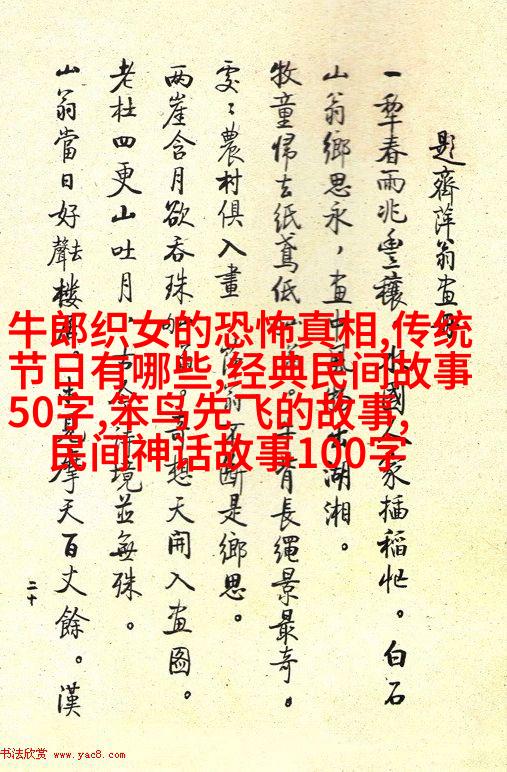 題齊萍翁畫
一犁春雨兆豐穰 水國人家插稻忙。白石
山翁鄉思永,畫中 湖湘。
牧童歸去紙鳶低 背長繩景最奇。
處々農村俱入畫 是鄉思。
兩崖含月欲吞珠 奇想天開入畫圖。
老杜四更山吐月,古今詩境並無殊。
山翁當日好去聲樓 摩天百丈餘。漢
二十
牛郎织女的恐怖真相,传统
节日有哪些,经典民间故事
50字,笨鸟先飞的故事,
民间神话故事100字
书法欣赏 www.yac8.com